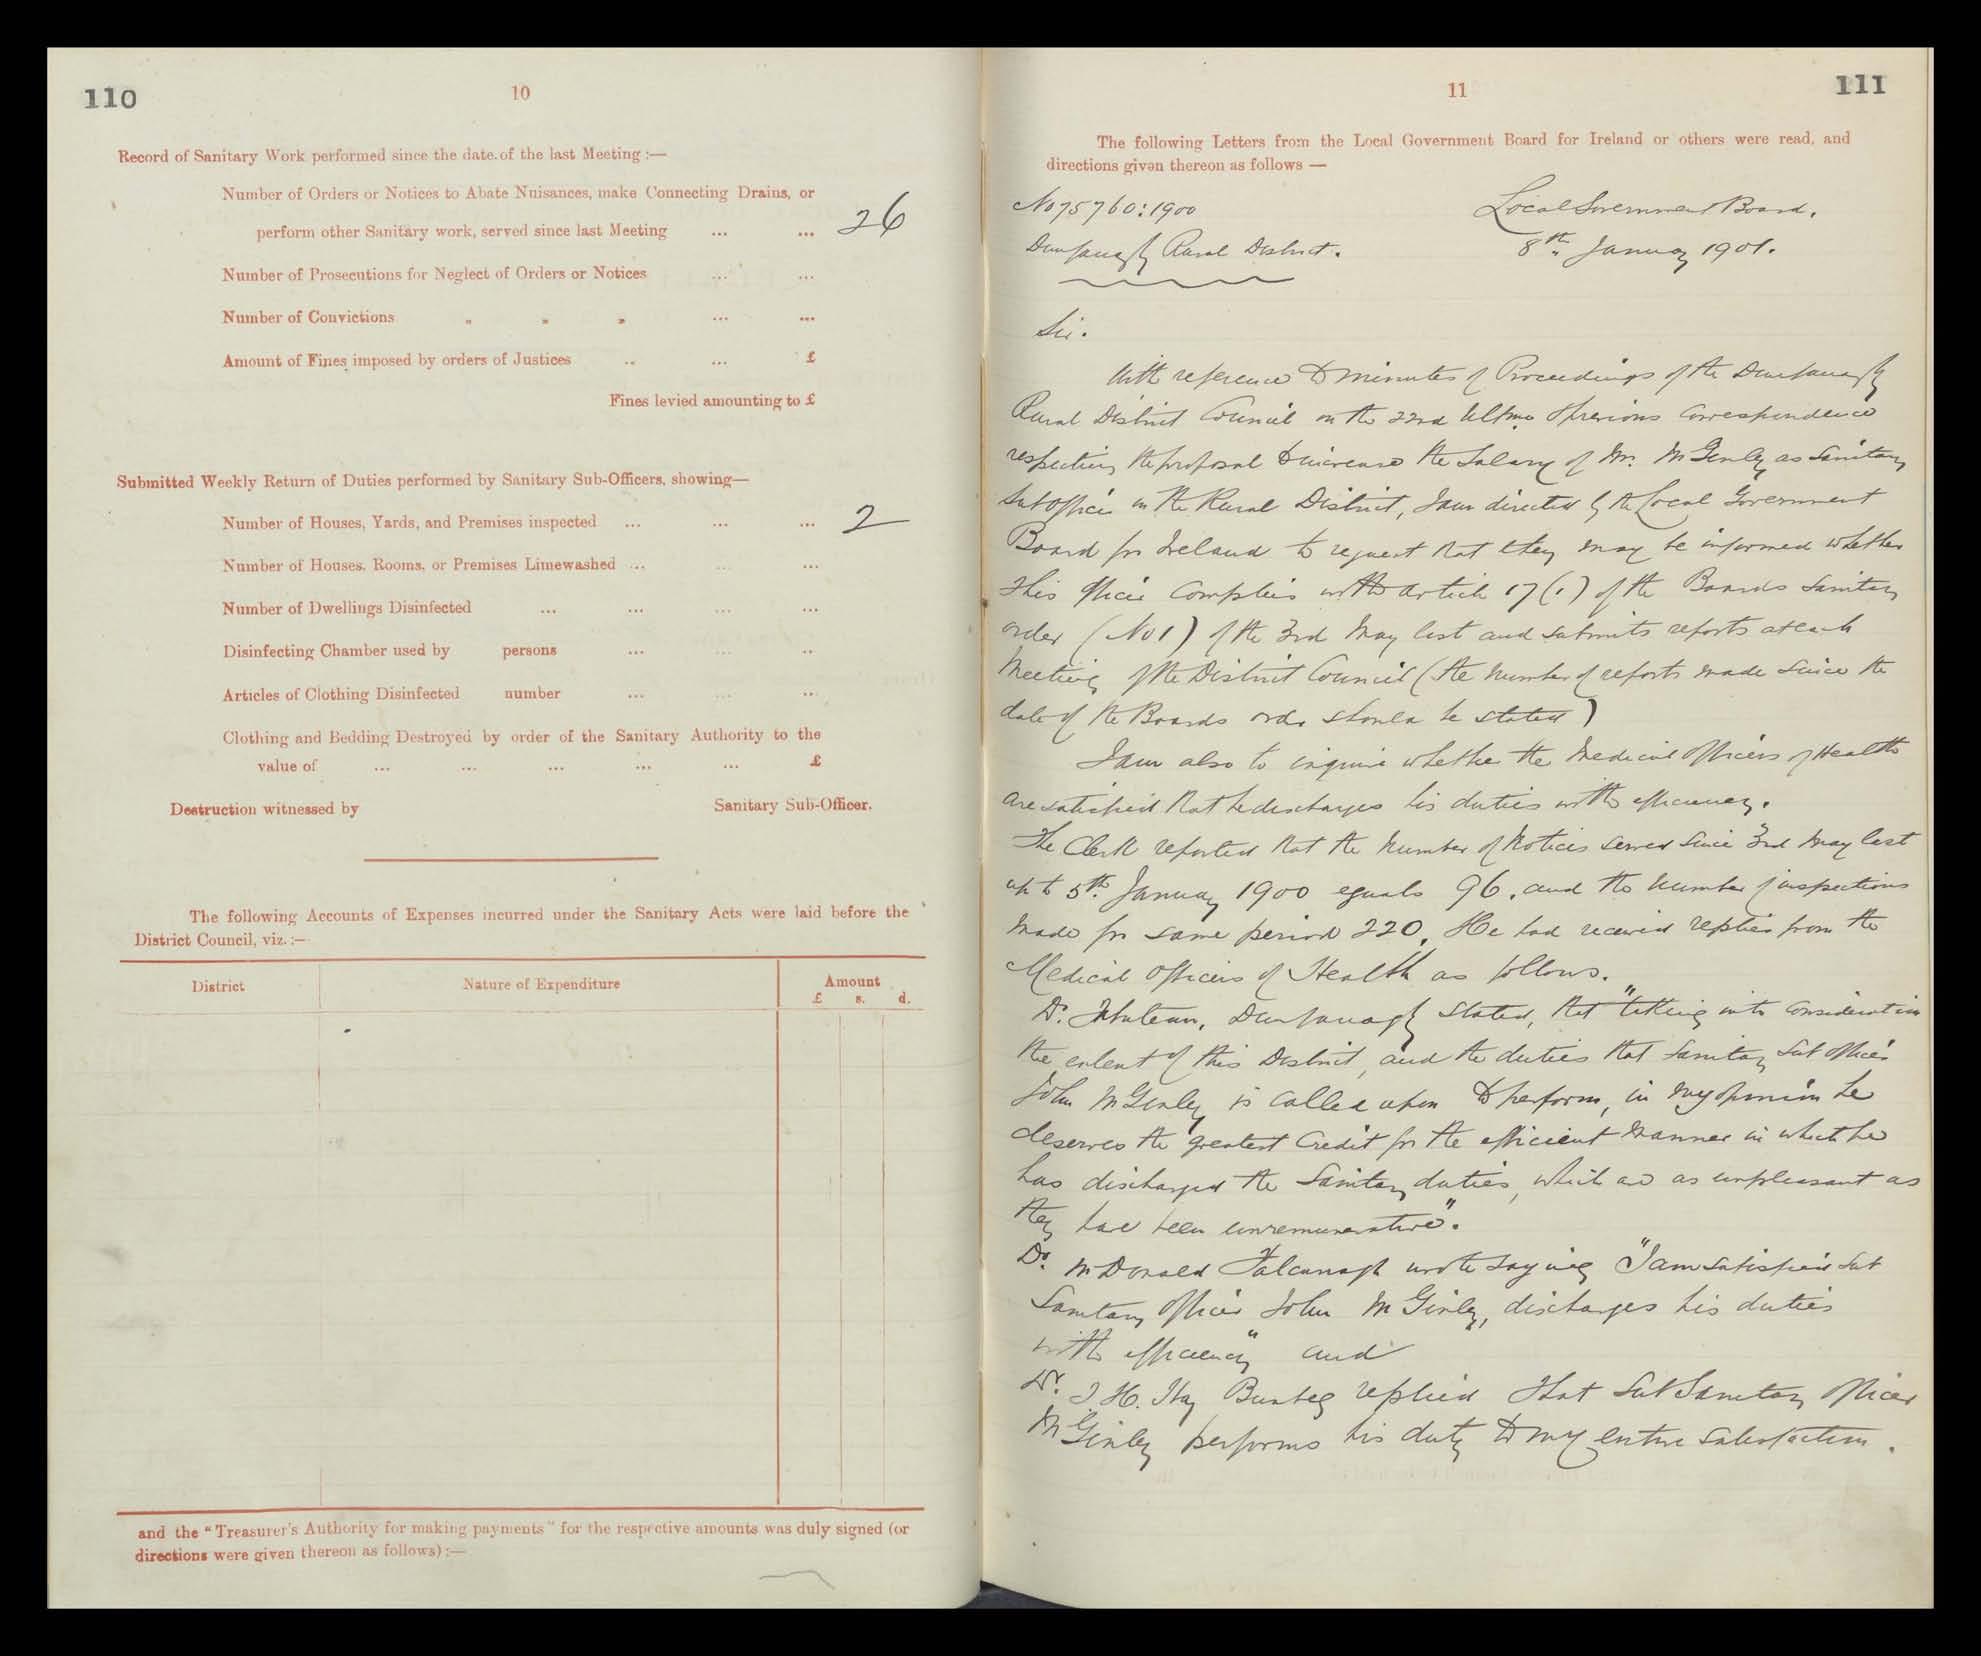 110
10
Record of Sanitary Work performed since the date of the last Meeting :—
Number of Orders or Notices to Abate Nuisances, make Connecting Drains, or
perform other Sanitary work, served since last Meeting ... ... 26
Number of Prosecutions for Neglect of Orders or Notices ... ...
Number of Convictions „ „ „ ... ...
Amount of Fines imposed by orders of Justices .. ... £
Fines levied amounting to £
Submitted Weekly Return of Duties performed by Sanitary Sub-Officers, showing—
Number of Houses, Yards, and Premises inspected ... ... ... 2
Number of Houses, Rooms, or Premises Limewashed ... ... ...
Number of Dwellings Disinfected ... ... ... ...
Disinfecting Chamber used by persons ... ... ..
Articles of Clothing Disinfected number ... ... ...
Clothing and Bedding Destroyed by order of the Sanitary Authority to the
value of ... ... ... ... ... £
Destruction witnessed by Sanitary Sub-Officer.
The following Accounts of Expenses incurred under the Sanitary Acts were laid before the
District Council, viz. :—
District Nature of Expenditure Amount
£ s. d.
and the "Treasurer's Authority for making payments" for the respective amounts was duly signed (or
directions were given thereon as follows) :—
11
111
The following Letters from the Local Government Board for Ireland or others were read, and
directions given thereon as follows —
No 75760:1900 Local Government Board.
Dunfanaghy Rural District. 8th January 1901.
Sir.
With reference to minutes of Proceedings of the Dunfanaghy
Rural District Council on the 22nd Ultmo & previous correspondence
respecting the proposal to increase the Salary of Mr. McGinley as Sanitary
Sub Officer in the Rural District, I am directed by the Local Government
Board for Ireland to request that they may be informed whether
this officer complies with Article 17 (1) of the Boards Sanitary
order (No 1) of the 3rd May last and submits reports at each
Meeting of the District Council (the number of reports made since the
date of the Boards order should be stated)
I am also to inquire whether the Medical Officers of Health
are satisfied that he discharges his duties with efficiency.
The Clerk reported that the number of Notices served since 3rd May last
up to 5th January 1900 equals 96, and the number of inspections
made for same period 220. He had received replies from the
Medical Officers of Health as follows.
Dr. Dunfanaghy stated, that "taking into consideration
the extent of this District, and the duties that Sanitary Sub Officer
John McGinley is called upon to perform, in my opinion he
deserves the greatest credit for the efficient manner in which he
has discharged the Sanitary duties, which are as unpleasant as
they have been unremunerative".
Dr. McDonald Falcarragh wrote saying "I am satisfied Sub
Sanitary Officer John McGinley, discharges his duties
with efficiency" and
Dr. Bunbeg replied that Sub Sanitary Officer
McGinley performs his duty to my entire satisfaction.